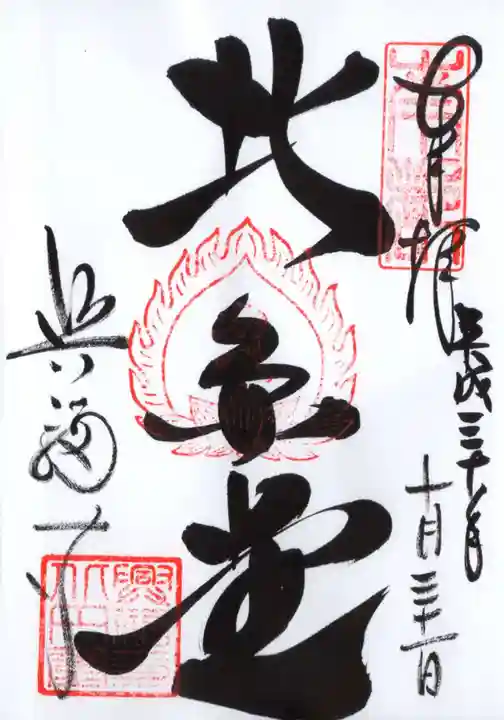 奉拝
平成三十年
十月三十一日
北円堂
興福寺